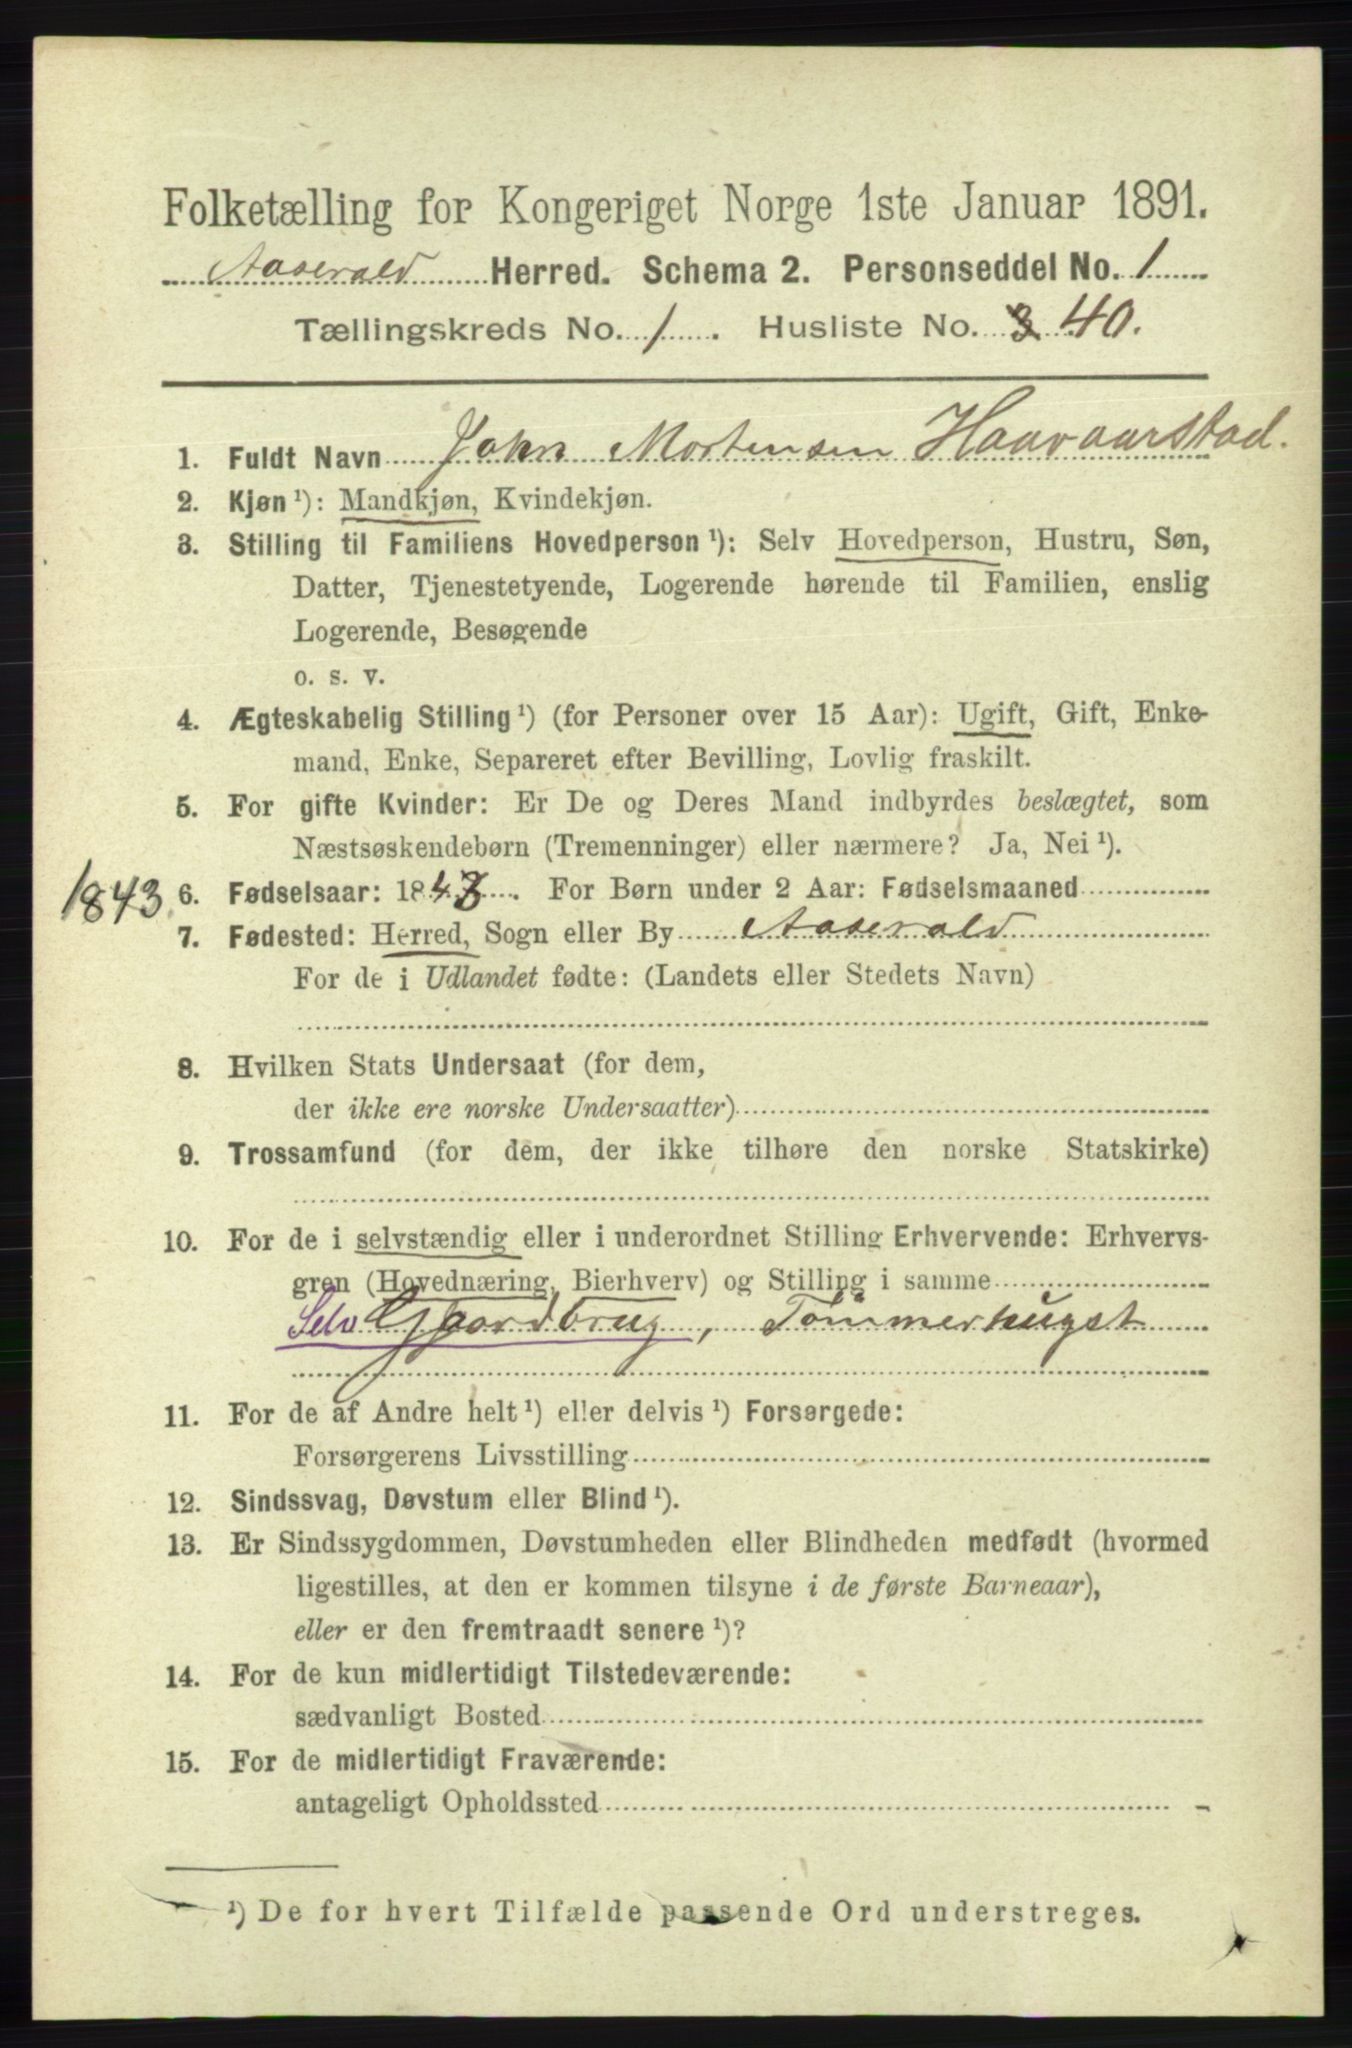 Folketælling for Kongeriget Norge 1ste Januar 1891.
Aaserald Herred. Schema 2. Personseddel No. 1
Tællingskreds No. 1. Husliste No. 3 40.
1. Fuldt Navn John Mortensen Haavaarstad.
2. Kjøn ¹): Mandkjøn, Kvindekjøn.
3. Stilling til Familiens Hovedperson ¹): Selv Hovedperson, Hustru, Søn,
Datter, Tjenestetyende, Logerende hørende til Familien, enslig
Logerende, Besøgende
o. s. v.
4. Ægteskabelig Stilling ¹) (for Personer over 15 Aar): Ugift, Gift, Enke-
mand, Enke, Separeret efter Bevilling, Lovlig fraskilt.
5. For gifte Kvinder: Er De og Deres Mand indbyrdes beslægtet, som
Næstsøskendebørn (Tremenninger) eller nærmere? Ja, Nei ¹).
1843. 6. Fødselsaar: 1843. For Børn under 2 Aar: Fødselsmaaned
7. Fødested: Herred, Sogn eller By Aaserald
For de i Udlandet fødte: (Landets eller Stedets Navn)
8. Hvilken Stats Undersaat (for dem,
der ikke ere norske Undersaatter)
9. Trossamfund (for dem, der ikke tilhøre den norske Statskirke)
10. For de i selvstændig eller i underordnet Stilling Erhvervende: Erhvervs-
gren (Hovednæring, Bierhverv) og Stilling i samme
Selv Gaardbrug, Tømmerhugst
11. For de af Andre helt ¹) eller delvis ¹) Forsørgede:
Forsørgerens Livsstilling
12. Sindssvag, Døvstum eller Blind ¹).
13. Er Sindssygdommen, Døvstumheden eller Blindheden medfødt (hvormed
ligestilles, at den er kommen tilsyne i de første Barneaar),
eller er den fremtraadt senere ¹)?
14. For de kun midlertidigt Tilstedeværende:
sædvanligt Bosted
15. For de midlertidigt Fraværende:
antageligt Opholdssted
¹) De for hvert Tilfælde passende Ord understreges.